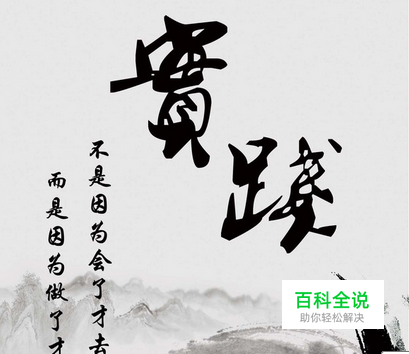 實踐
不是因为会了才去
而是因为做了才
百科全说
助你轻松解决